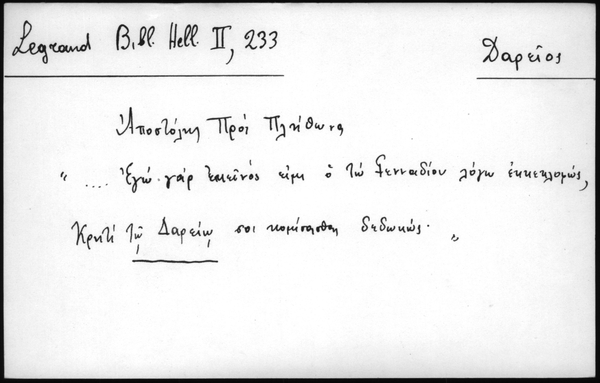 Legrand Bibl. Hell. II, 233
Δαρεῖος
Ἀποστόλης Πρὸς Πλήθωνα
" .... Ἐγὼ γάρ ἐκεῖνός εἰμι ὁ τῶ Γενναδίου λόγω ἐκκεκλομώς,
Κρητὶ τῷ Δαρείῳ σοι κομίσασθαι δεδωκώς. "